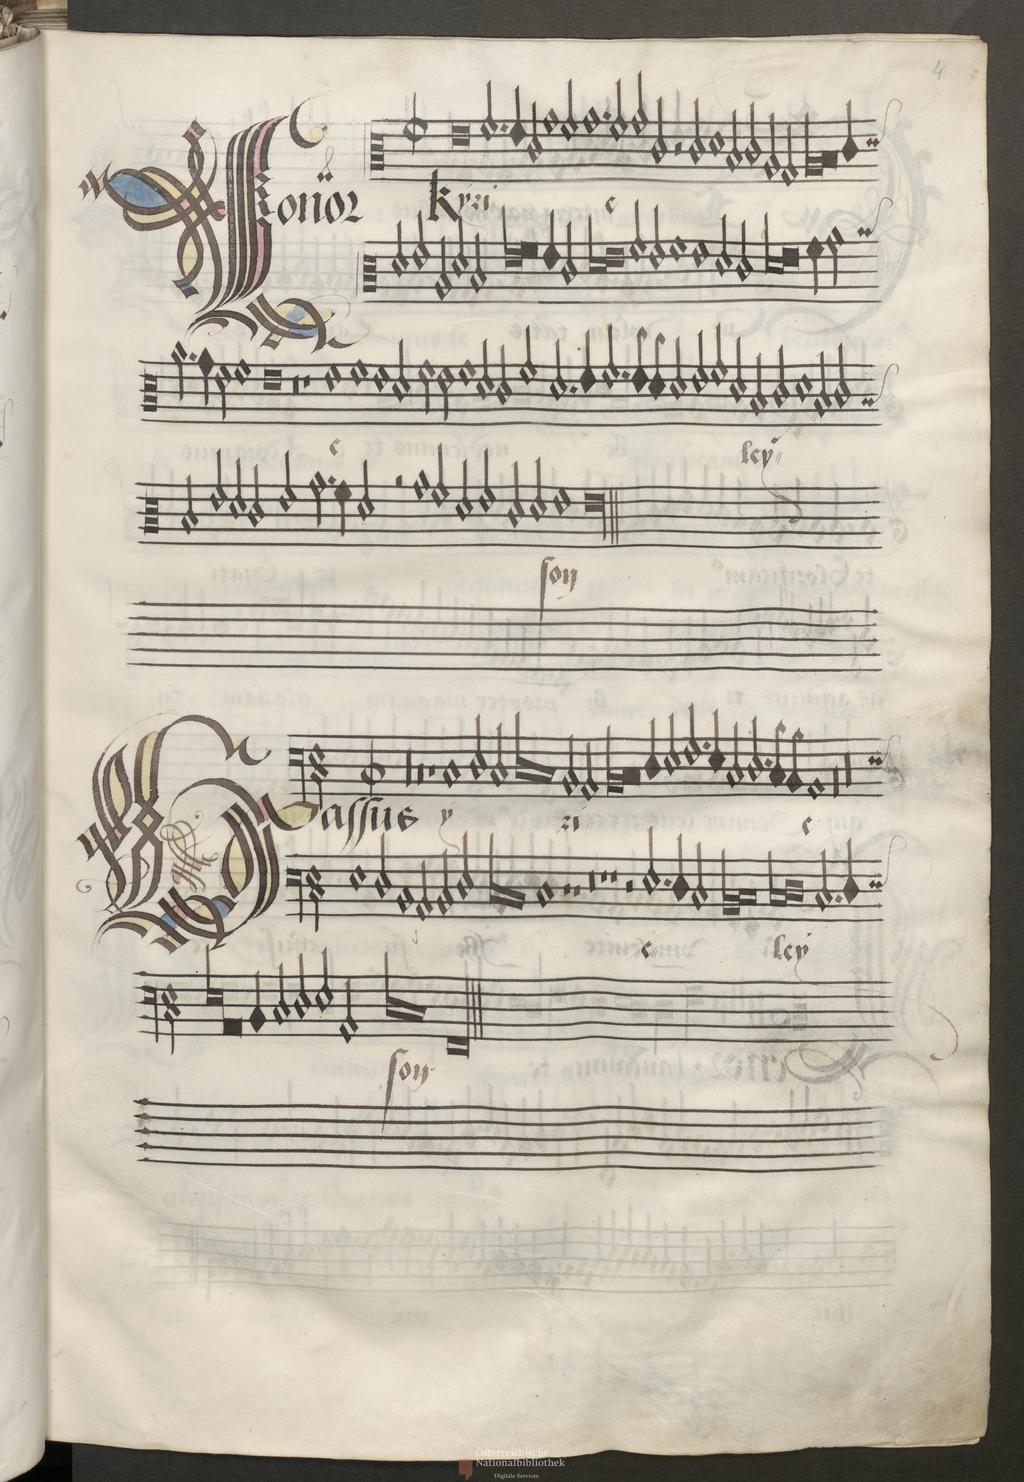 4
Kyri e
e ley
son
Bassus y ri e
e ley
son
Österreichische
Nationalbibliothek
Digitale Services